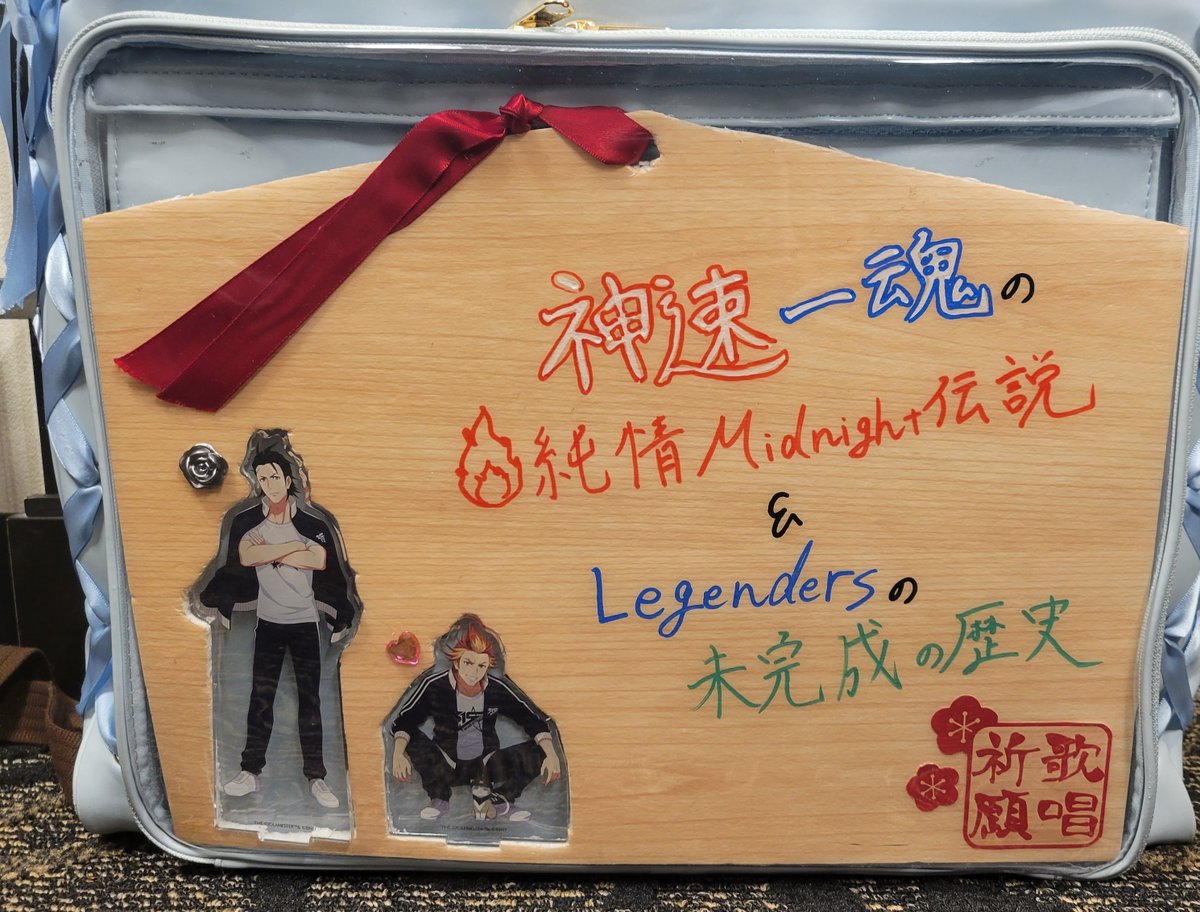 神速一魂の
純情Midnight伝説
&
Legendersの
未完成の歴史
歌唱
祈願